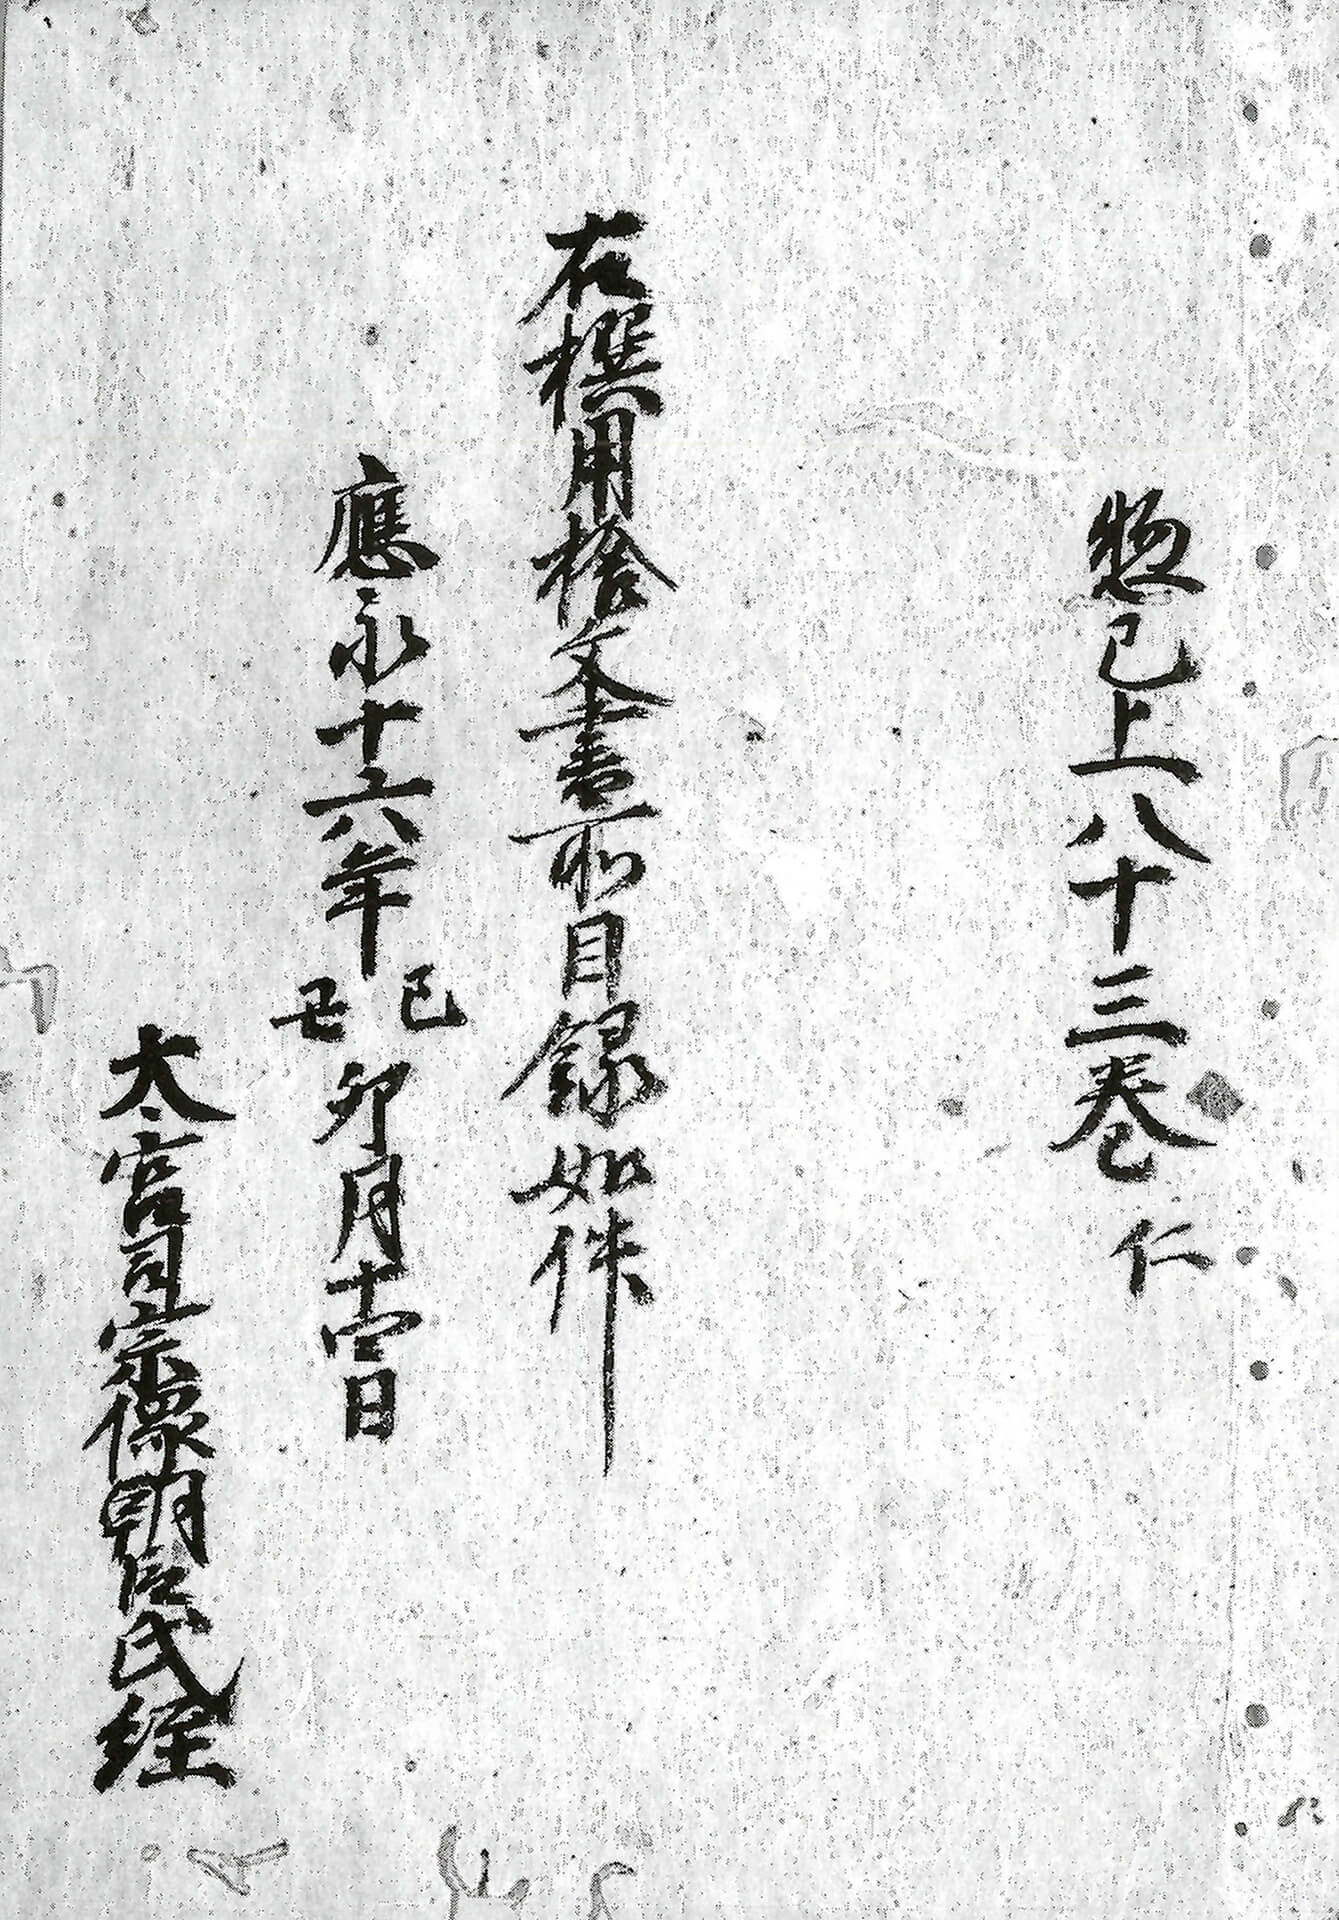 惣已上八十三巻 仁
右撰用捨文書所目録如件
應永十六年己丑卯月十一日
大宮司宗像朝臣氏経